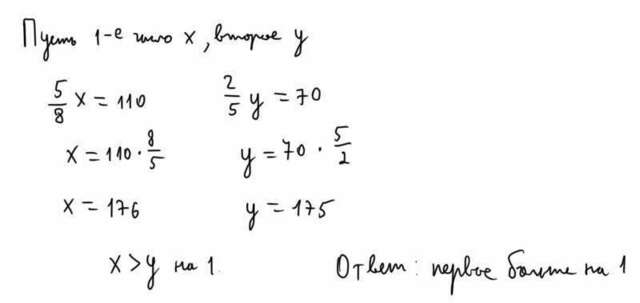 Пусть 1-е число x, второе y
5/8 x = 110    2/5 y = 70
x = 110 · 8/5    y = 70 · 5/2
x = 176    y = 175
x > y на 1    Ответ: первое больше на 1